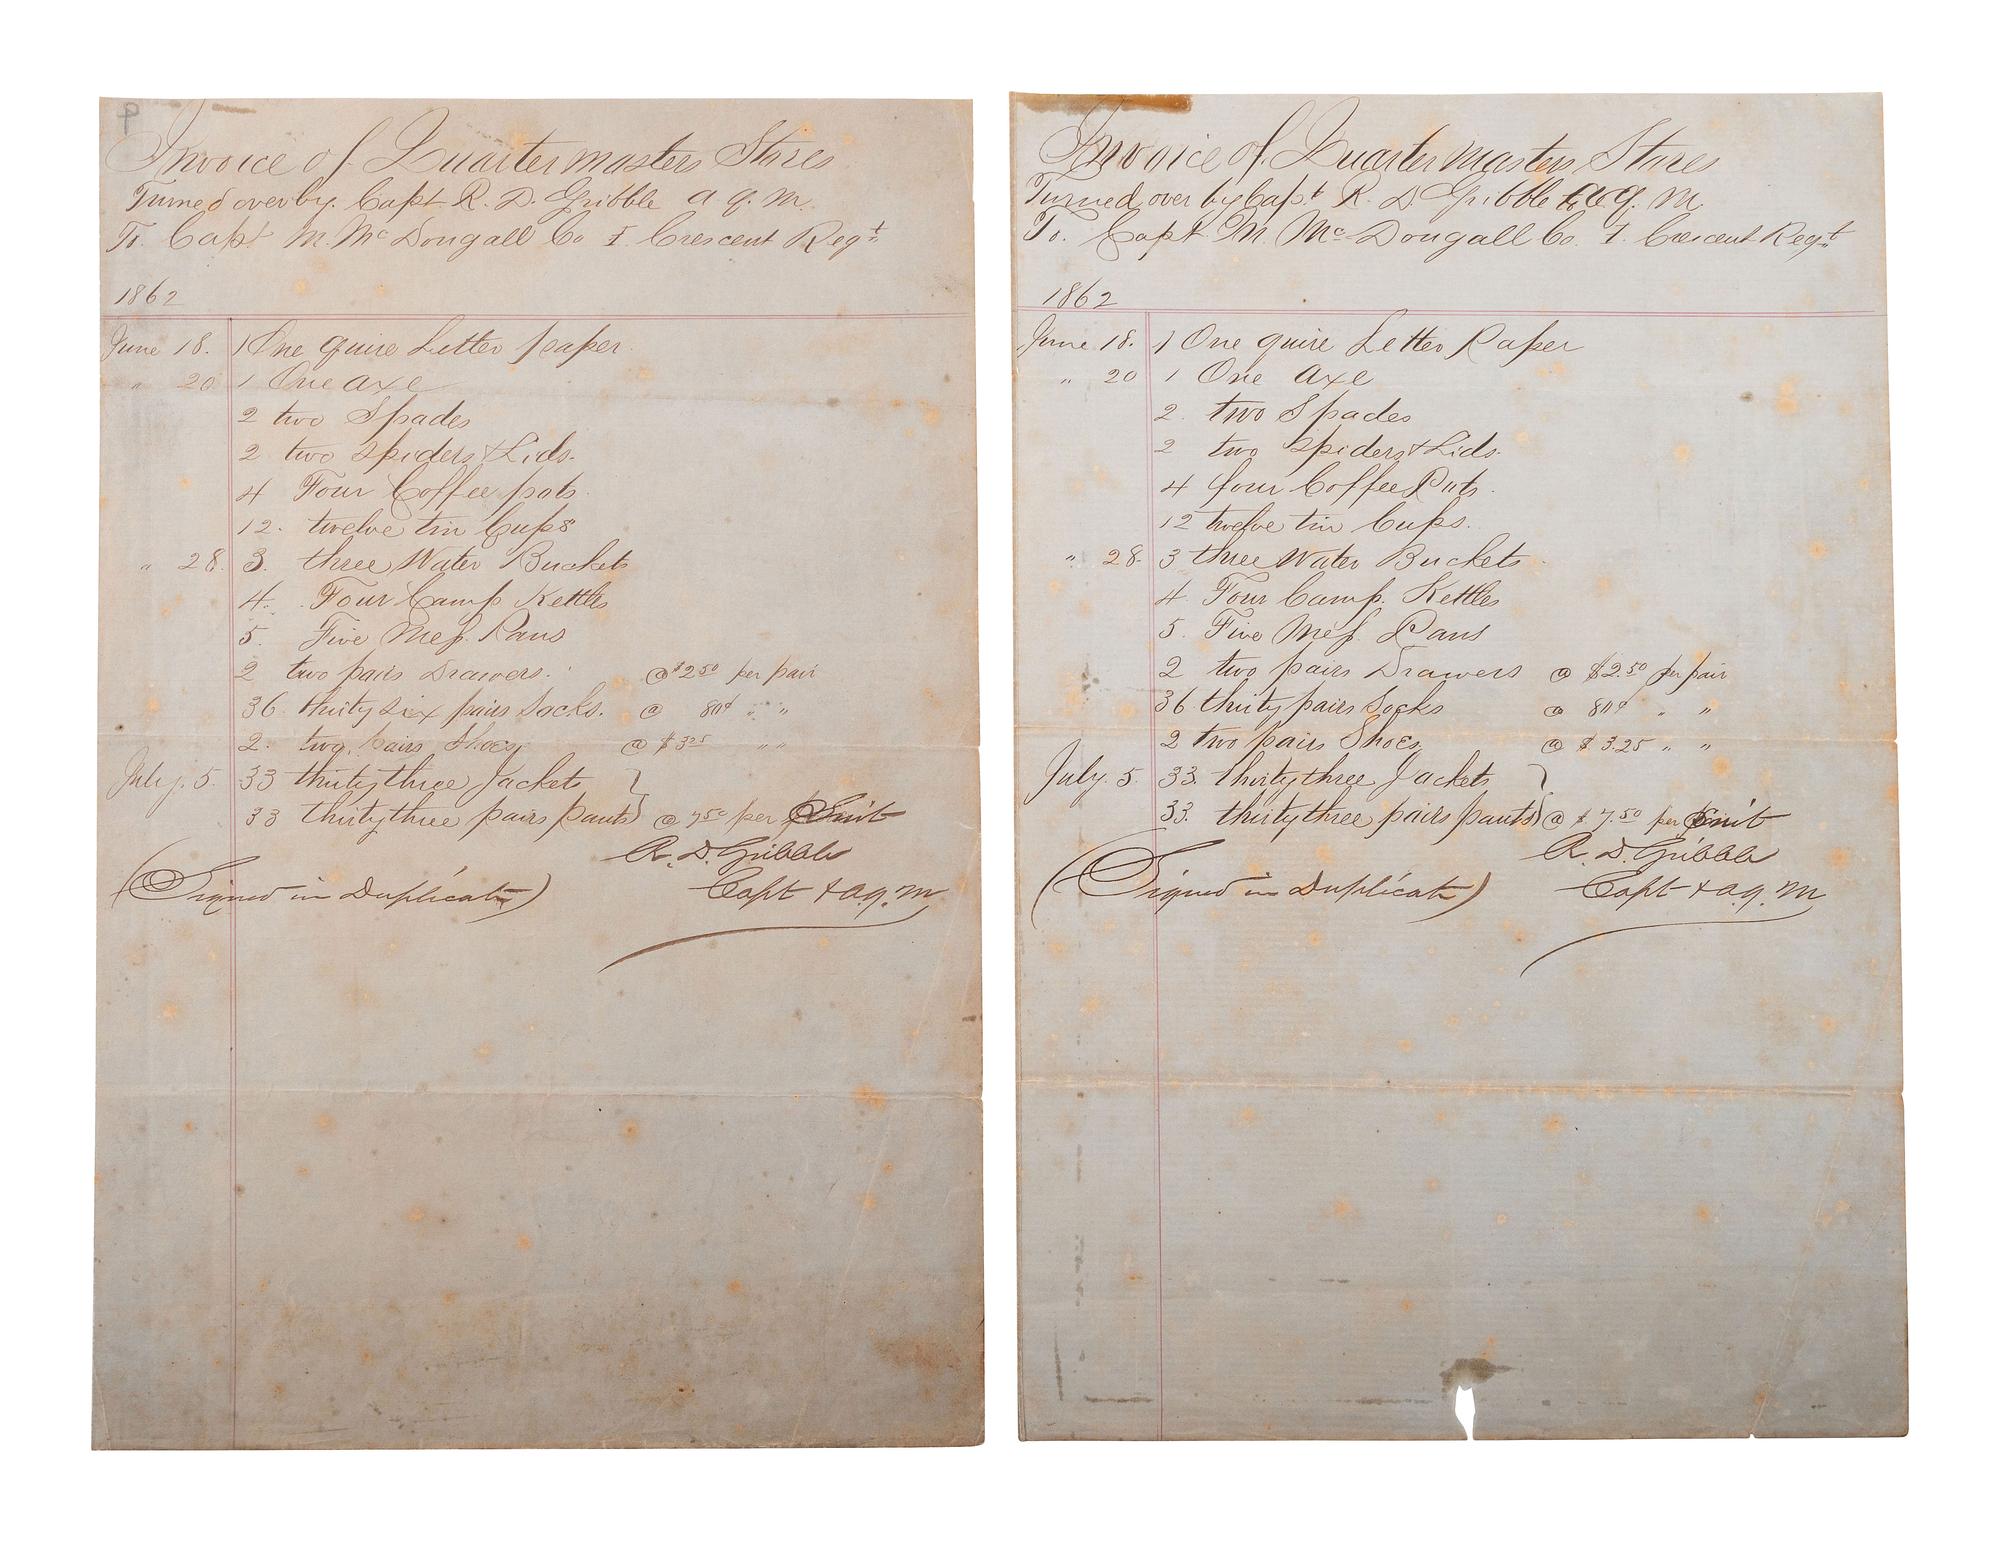 P
Invoice of Quartermasters Stores
Turned over by. Capt R. D. Gribble a q. m.
To. Capt M. McDougall Co I. Crescent Regt
1862
June 18. 1 One quire Letter paper.
" 20 1 One axe
2 two Spades
2 two spiders & Lids.
4 Four Coffee pots.
12. twelve tin Cups
" 28. 3. three Water Buckets
4. Four Camp Kettles
5. Five Mess. Pans
2 two pairs Drawers. @ $2 50 per pair
36. thirty six pairs Socks. @ 80¢ " "
2. two pairs Shoes @ $3 25 " "
July. 5. 33 thirty three Jackets }
33 thirty three pairs pants } @ 7 50 per Suit
R. D. Gribble
(Signed in Duplicate) Capt & a. q. m
Invoice of Quartermasters Stores
Turned over by Capt R. D Gribble a q. m.
To. Capt. M. McDougall Co. I. Crescent Regt
1862
June 18. 1 One quire Letter Paper
" 20 1 One axe
2. two Spades
2 two spiders & Lids.
4 four Coffee Pots.
12 twelve tin Cups.
" 28. 3 three Water Buckets.
4. Four Camp. Kettles
5. Five Mess. Pans
2 two pairs Drawers @ $2.50 per pair
36 thirty pairs Socks @ 80¢ " "
2 two pairs Shoes @ $3.25 " "
July. 5. 33. thirty three Jackets }
33. thirty three pairs pants } @ $7.50 per Suit
R. D. Gribble
(Signed in Duplicate) Capt & a. q. m